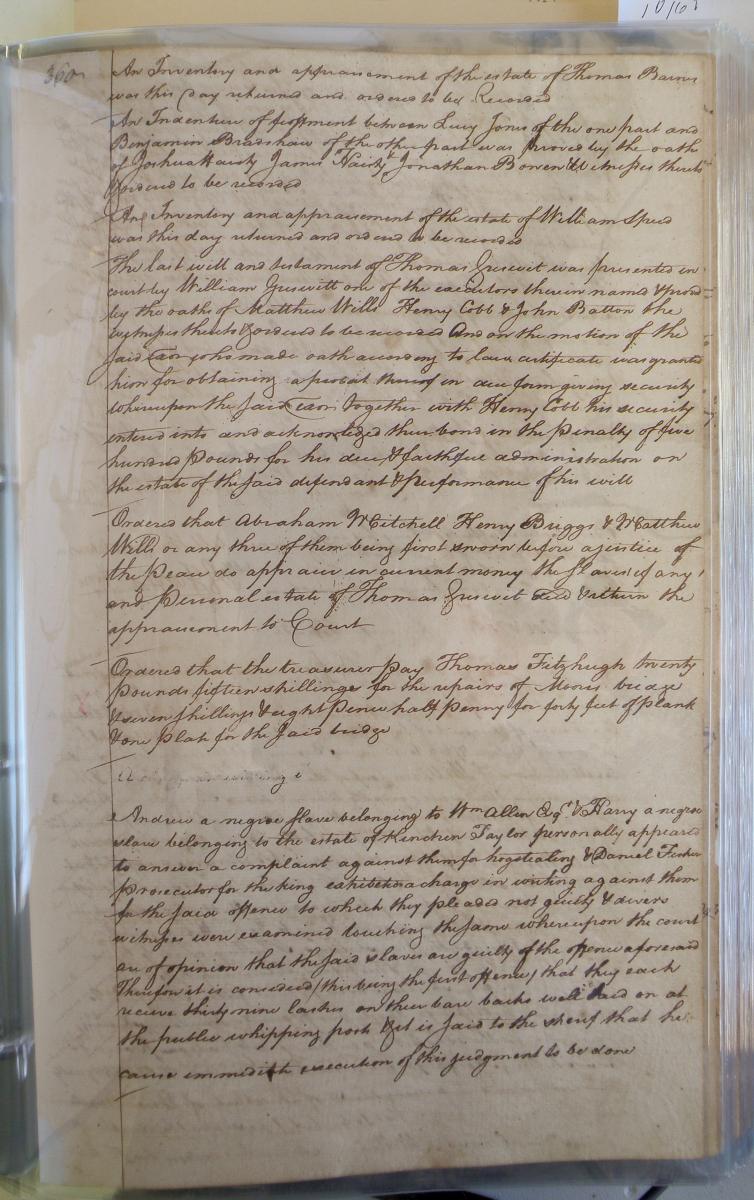 360
An Inventory and appraisement of the estate of Thomas Barns
was this day returned and ordered to be Recorded
An Indenture of feoffment between Lucy Jones of the one part and
Benjamin Bradshaw of the other part was proved by the oath
of Joshua Hardy James Hardy & Jonathan Bowen Witnesses thereto
& ordered to be recorded
An Inventory and appraisement of the estate of William Speed
was this day returned and ordered to be recorded
The last will and testament of Thomas Griswit was presented in
court by William Griswitt one of the executors therein named & prov
by the oaths of Matthew Wills Henry Cobb & John Batton the
witnesses thereto & ordered to be recorded And on the motion of the
said Exor who made oath according to law certificate was grant
him for obtaining a probat thereof in due form giving security
whereupon the said Exor together with Henry Cobb his security
entered into and acknowledged their bond in the Penalty of five
hundred pounds for his due & faithful administration on
the estate of the said defendant & performance of his will
Ordered that Abraham Mitchell Henry Briggs & Matthew
Wills or any three of them being first sworn before a justice of
the peace do appraise in current money the slaves if any
and personal estate of Thomas Griswit & return the
appraisement to Court
Ordered that the treasurer pay Thomas Fitzhugh twenty
pounds fifteen shillings for the repairs of bridge
& seven shillings & eight pence half penny for forty feet of plank
& one plate for the said bridge
Andrew a negroe slave belonging to Wm Allen Esqr & Harry a negroe
slave belonging to the estate of Kinchen Taylor personally appeared
to answer a complaint against them for hogstealing & Daniel Fisher
prosecutor for the king exhibited a charge in writing against them
for the said offence to which they pleaded not guilty & divers
witnesses were examined touching the same whereupon the court
are of opinion that the said slaves are guilty of the offence aforesaid
Therefore it is considered (this being the first offence) that they each
recieve thirty nine lashes on their bare backs well laid on at
the public whipping post & it is said to the sherif that he
cause immediate execution of this judgment to be done